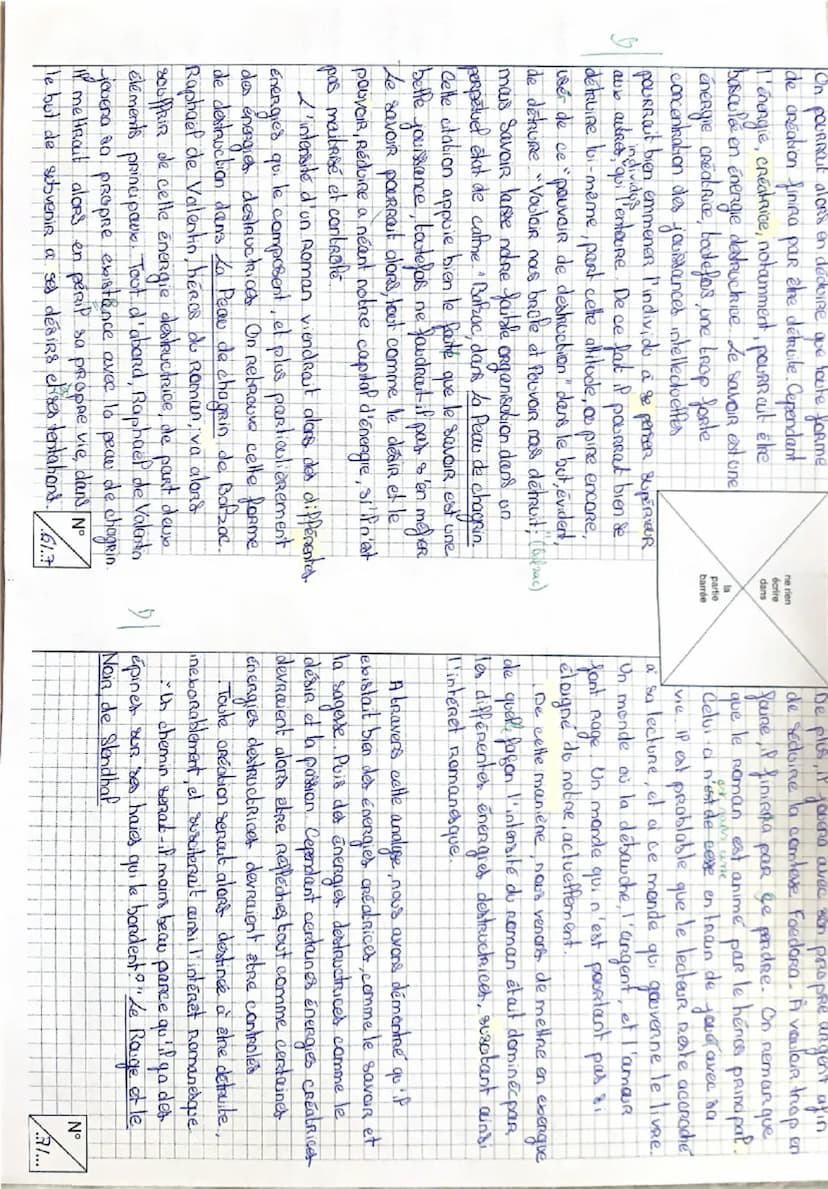 On pourrait alors en déduire que toute forme
de création finira par être détruite. Cependant
l'énergie, créatrice, notamment, pourrait être
basculée en énergie destructrice. Le savoir est une
énergie créatrice, toutefois, une trop forte
concentration des jouissances intellectuelles
pourrait bien emmener l'individu à se penser supérieur
aux autres, individus qui l'entoure. De ce fait il pourrait bien se
détruire lui-même, part cette attitude, ou pire encore,
user de ce "pouvoir de destruction" dans le but, évident,
de détruire. "Vouloir nous brûle et Pouvoir nous détruit, (Balzac)
mais savoir laisse notre faible organisation dans un
perpétuel état de calme" Balzac, dans La Peau de chagrin.
Cette citation appuie bien le faite que le savoir est une
belle jouissance, toutefois ne faudrait-il pas s'en méfier
Le savoir pourrait alors, tout comme le désir et le
pouvoir, réduire a néant notre capital d'énergie, s'il n'est
pas maitrisé et contrôlé.
L'intensité d'un Roman viendrait alors des différentes
énergies qui le composent, et plus particulièrement
des énergies destructrices. On retrouve cette forme
de destruction dans La Peau de chagrin de Balzac.
Raphaël de Valentin, héros du roman, va alors
souffrir de cette énergie destructrice, de part deux
éléments principaux. Tout d'abord, Raphaël de Valentin
jouera sa propre existence avec la peau de chagrin.
Il mettrait alors en péril sa propre vie, dans
le but de subvenir a ses désirs et ses tentations.
N°
6/7
ne rien
écrire
dans
la
partie
barrée
De plus, il jouera avec son propre argent afin
de séduire la comtesse Foedora. À vouloir trop en
faire, il finira par se perdre. On remarque
que le roman est animé par le héros principal.
Celui-ci n'est de cesse en train de jouer avec sa
vie. Il est probable que le lecteur reste accroché
à sa lecture, et à ce monde qui gouverne le livre.
Un monde où la débauche, l'argent, et l'amour
font rage. Un monde qui n'est pourtant pas si
éloigné du notre actuellement.
De cette manière, nous venons de mettre en exergue
de quelle façon l'intensité du roman était dominée par
les différentes énergies destructrices, suscitant ainsi
l'intérêt romanesque.
A travers cette analyse, nous avons démontré qu'il
existait bien des énergies créatrices, comme le savoir et
la sagesse. Puis des énergies destructrices comme le
désir et la passion. Cependant certaines énergies créatrices
devraient alors être réfléchies, tout comme certaines
énergies destructrices devraient être contrôlés.
Toute création serait alors destinée à être détruite,
inexorablement, et susciterait ainsi l'intérêt Romanesque.
"Un chemin serait-il moins beau parce qu'il y a des
épines sur ses haies qui le bordent?" Le Rouge et le
Noir, de Stendhal
N°
7/...